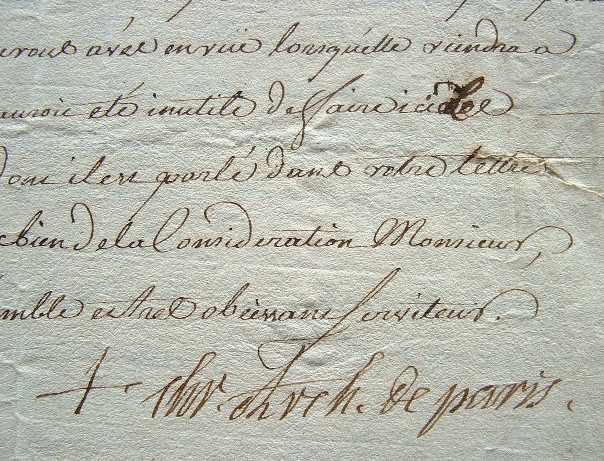 avec en vüe lorsquélle viendra a
auroit eté inutile de faire ici
dont il est parlé dans votre lettre
bien de la Consideration Monsieur,
mble et tres obeissant serviteur.
+ chr. Arch. de paris.